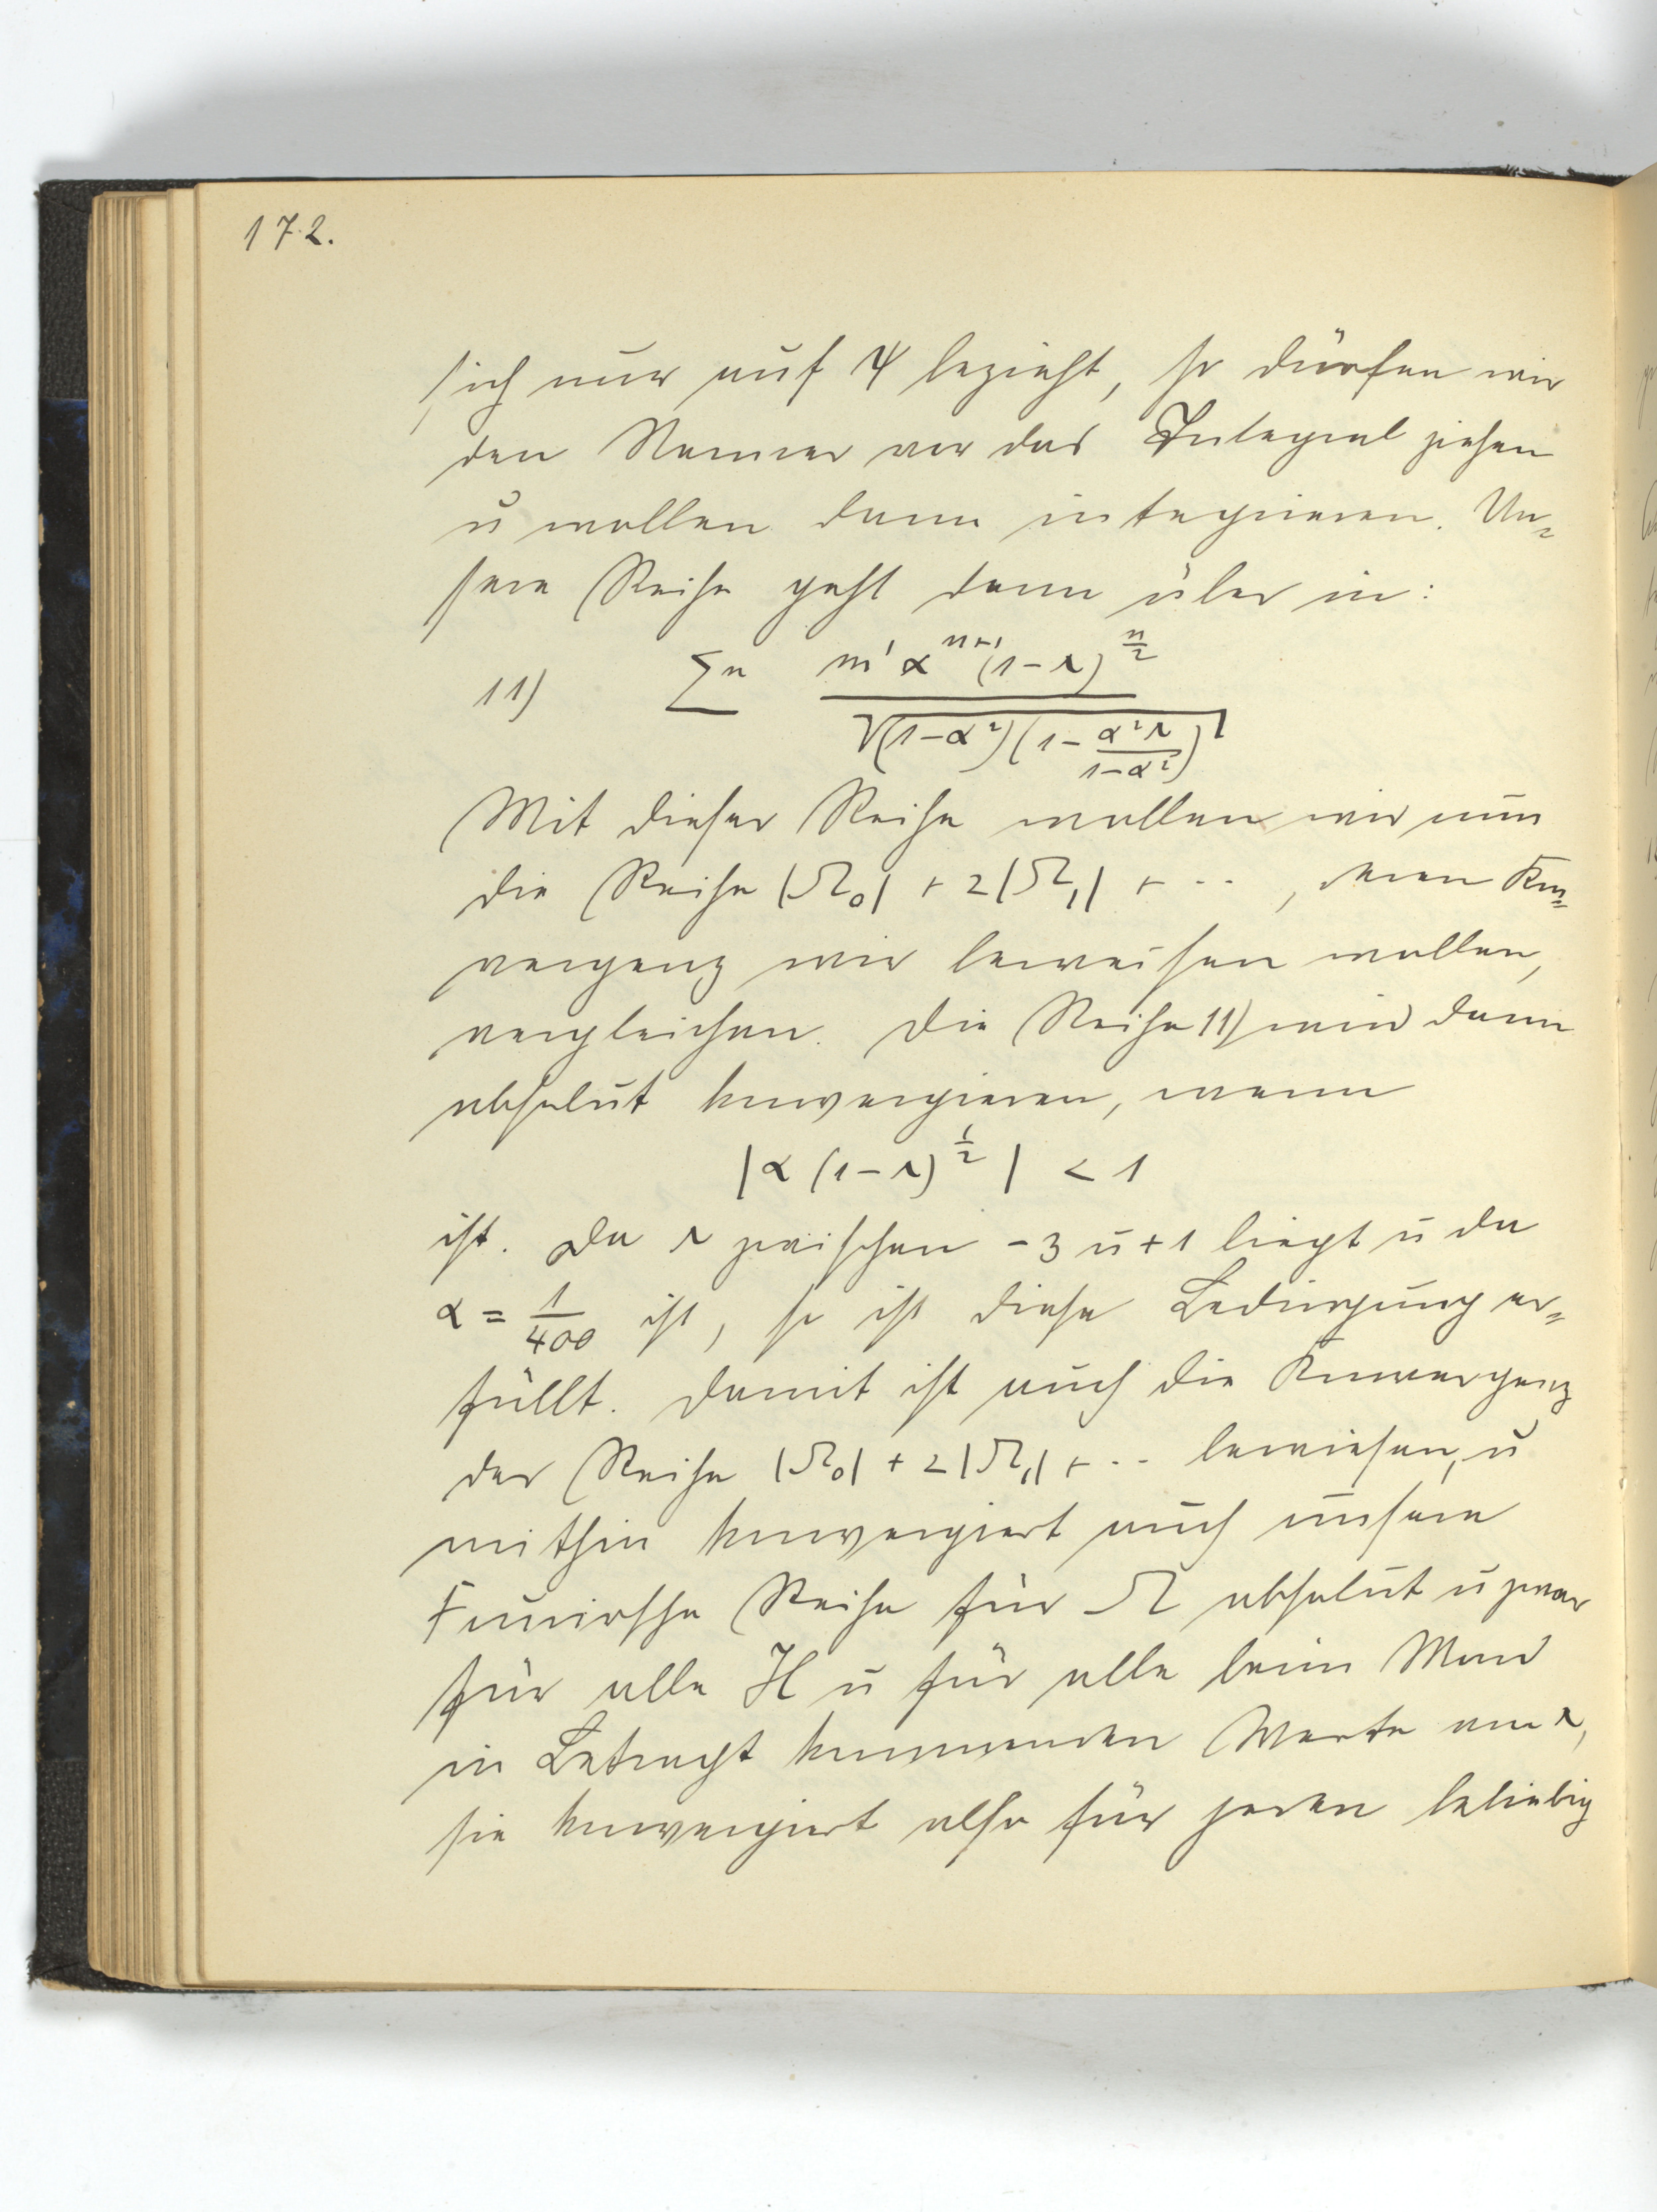 172.
sich nur auf ψ bezieht, so dürfen wir
den Nenner vor das Integral ziehen
u wollen dann integrieren. Un=
sere Reihe geht dann über in:
11) Σⁿ m' α^{n+1} (1-s)^{n/2} / √((1-α²)(1 - α²s/(1-α²)))
Mit dieser Reihe wollen wir nun
die Reihe |Ω₀| + 2|Ω₁| + ··· , deren Kon=
vergenz wir beweisen wollen,
vergleichen. Die Reihe 11) wird dann
absolut konvergieren, wenn
|α (1-s)^{1/2}| < 1
ist. Da s zwischen -3 u +1 liegt u da
α = 1/400 ist, so ist diese Bedingung er=
füllt. Damit ist auch die Konvergenz
der Reihe |Ω₀| + 2|Ω₁| + ··· bewiesen, u
mithin konvergiert auch unsere
Fourirsche Reihe für Ω absolut u zwar
für alle H u für alle beim Mond
in Betracht kommenden Werte von s,
sie konvergiert also für jeden beliebig